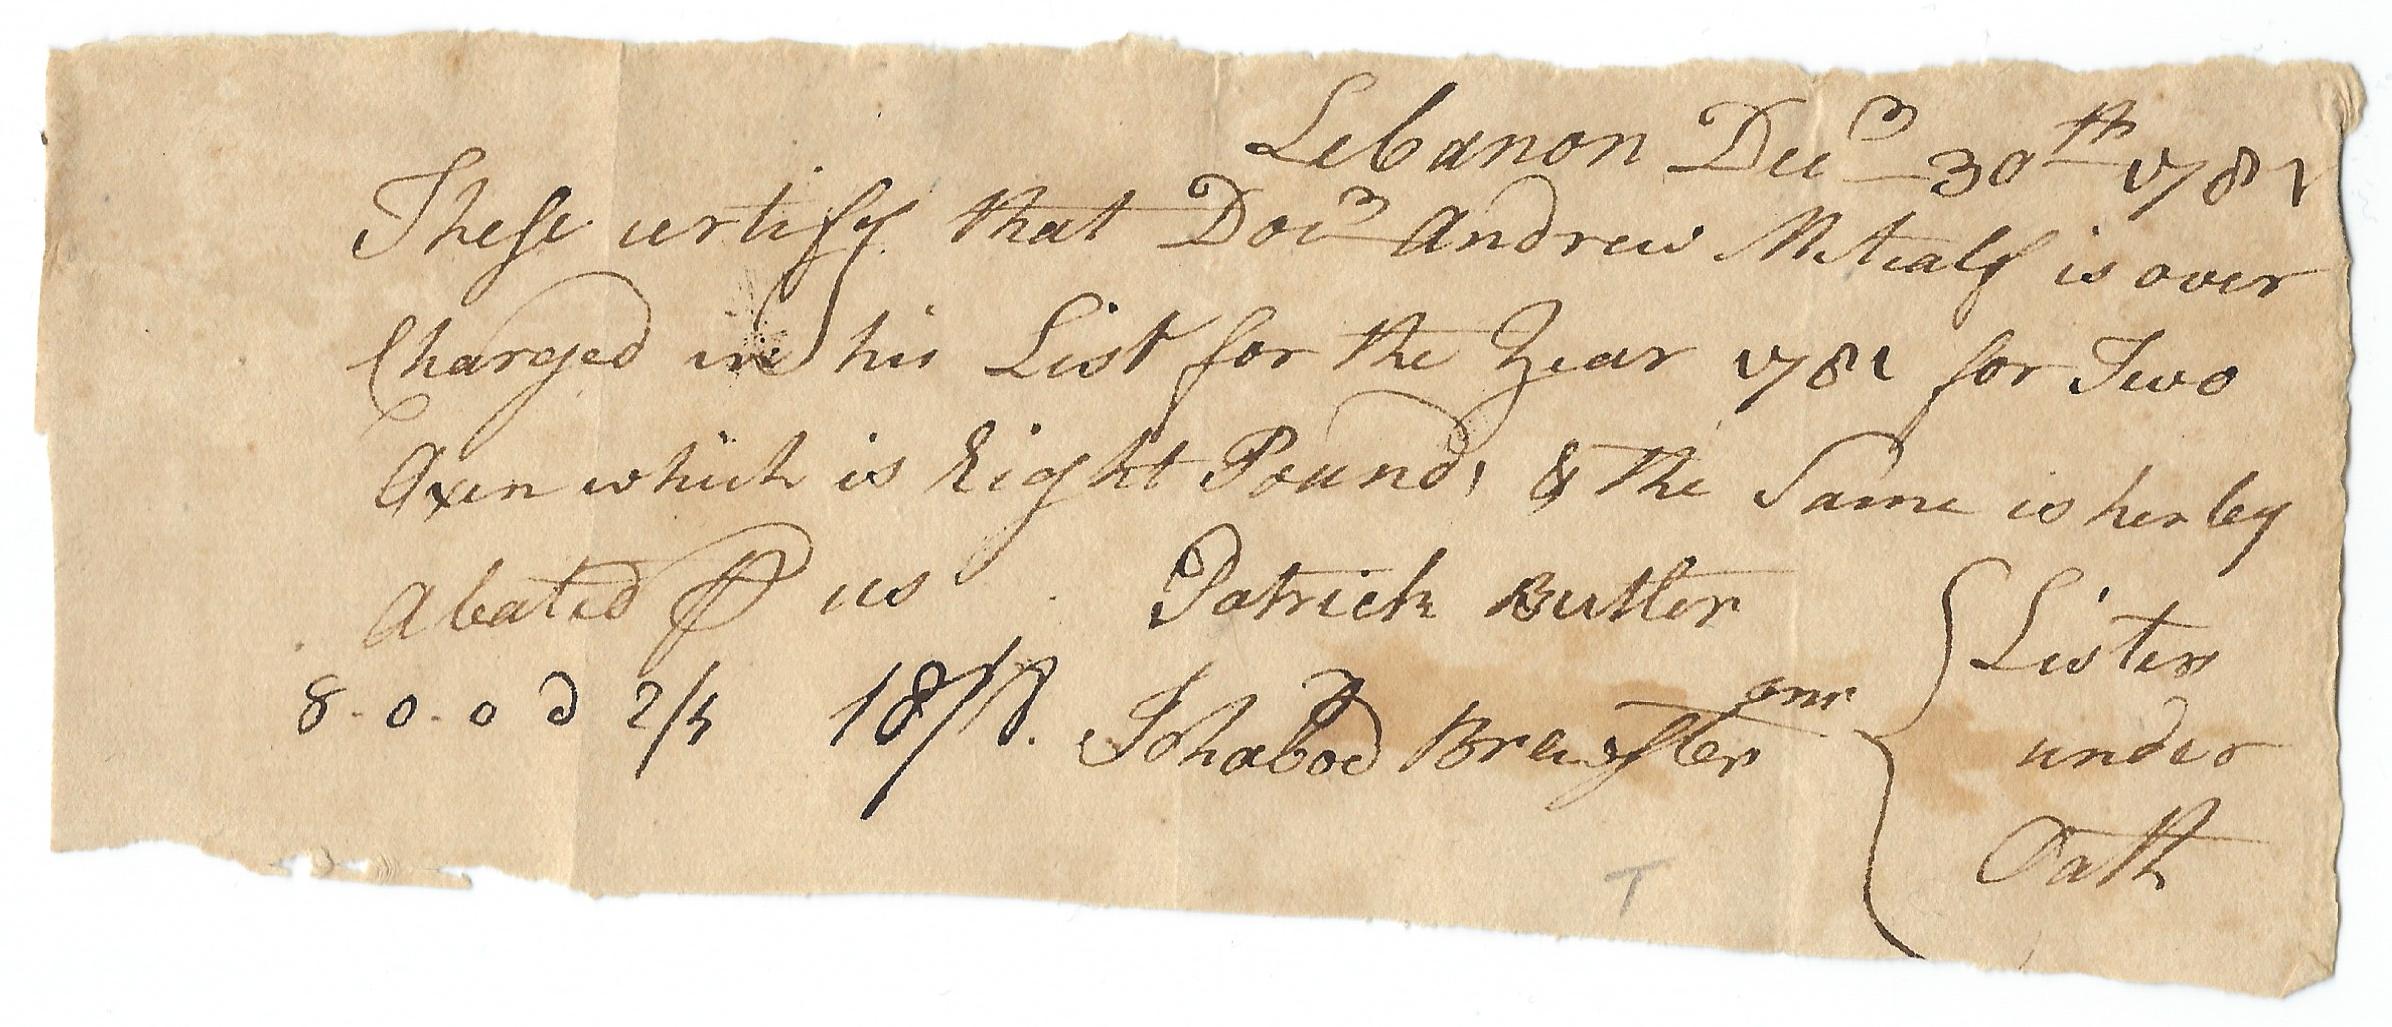 Lebanon Decm 30th 1781
These certify that Docm Andrew Metcalf is over
Charged in his List for the Year 1781 for Two
Oxen which is Eight Pounds & the Same is herby
Abated ⅌ us Patrick Butler
8-0-0 @ 2/4 18/8. Ichabod Brewster Jnr
Listers
under
Oath
T